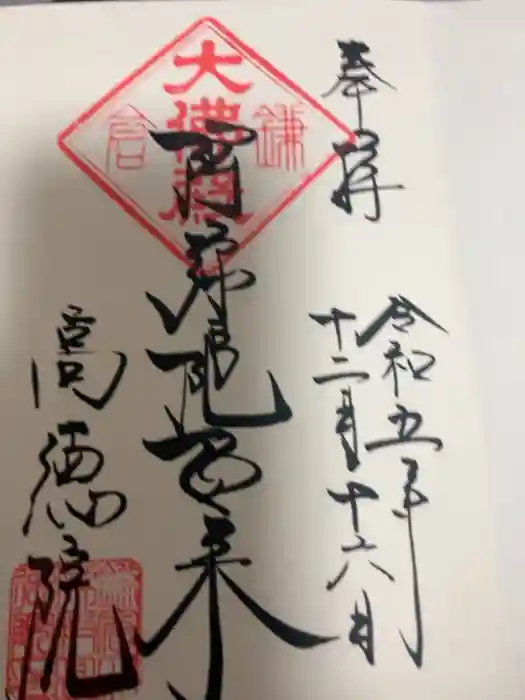 奉拝
令和五年
十二月十六日
大佛殿
鎌
倉
阿弥陀如来
高徳院